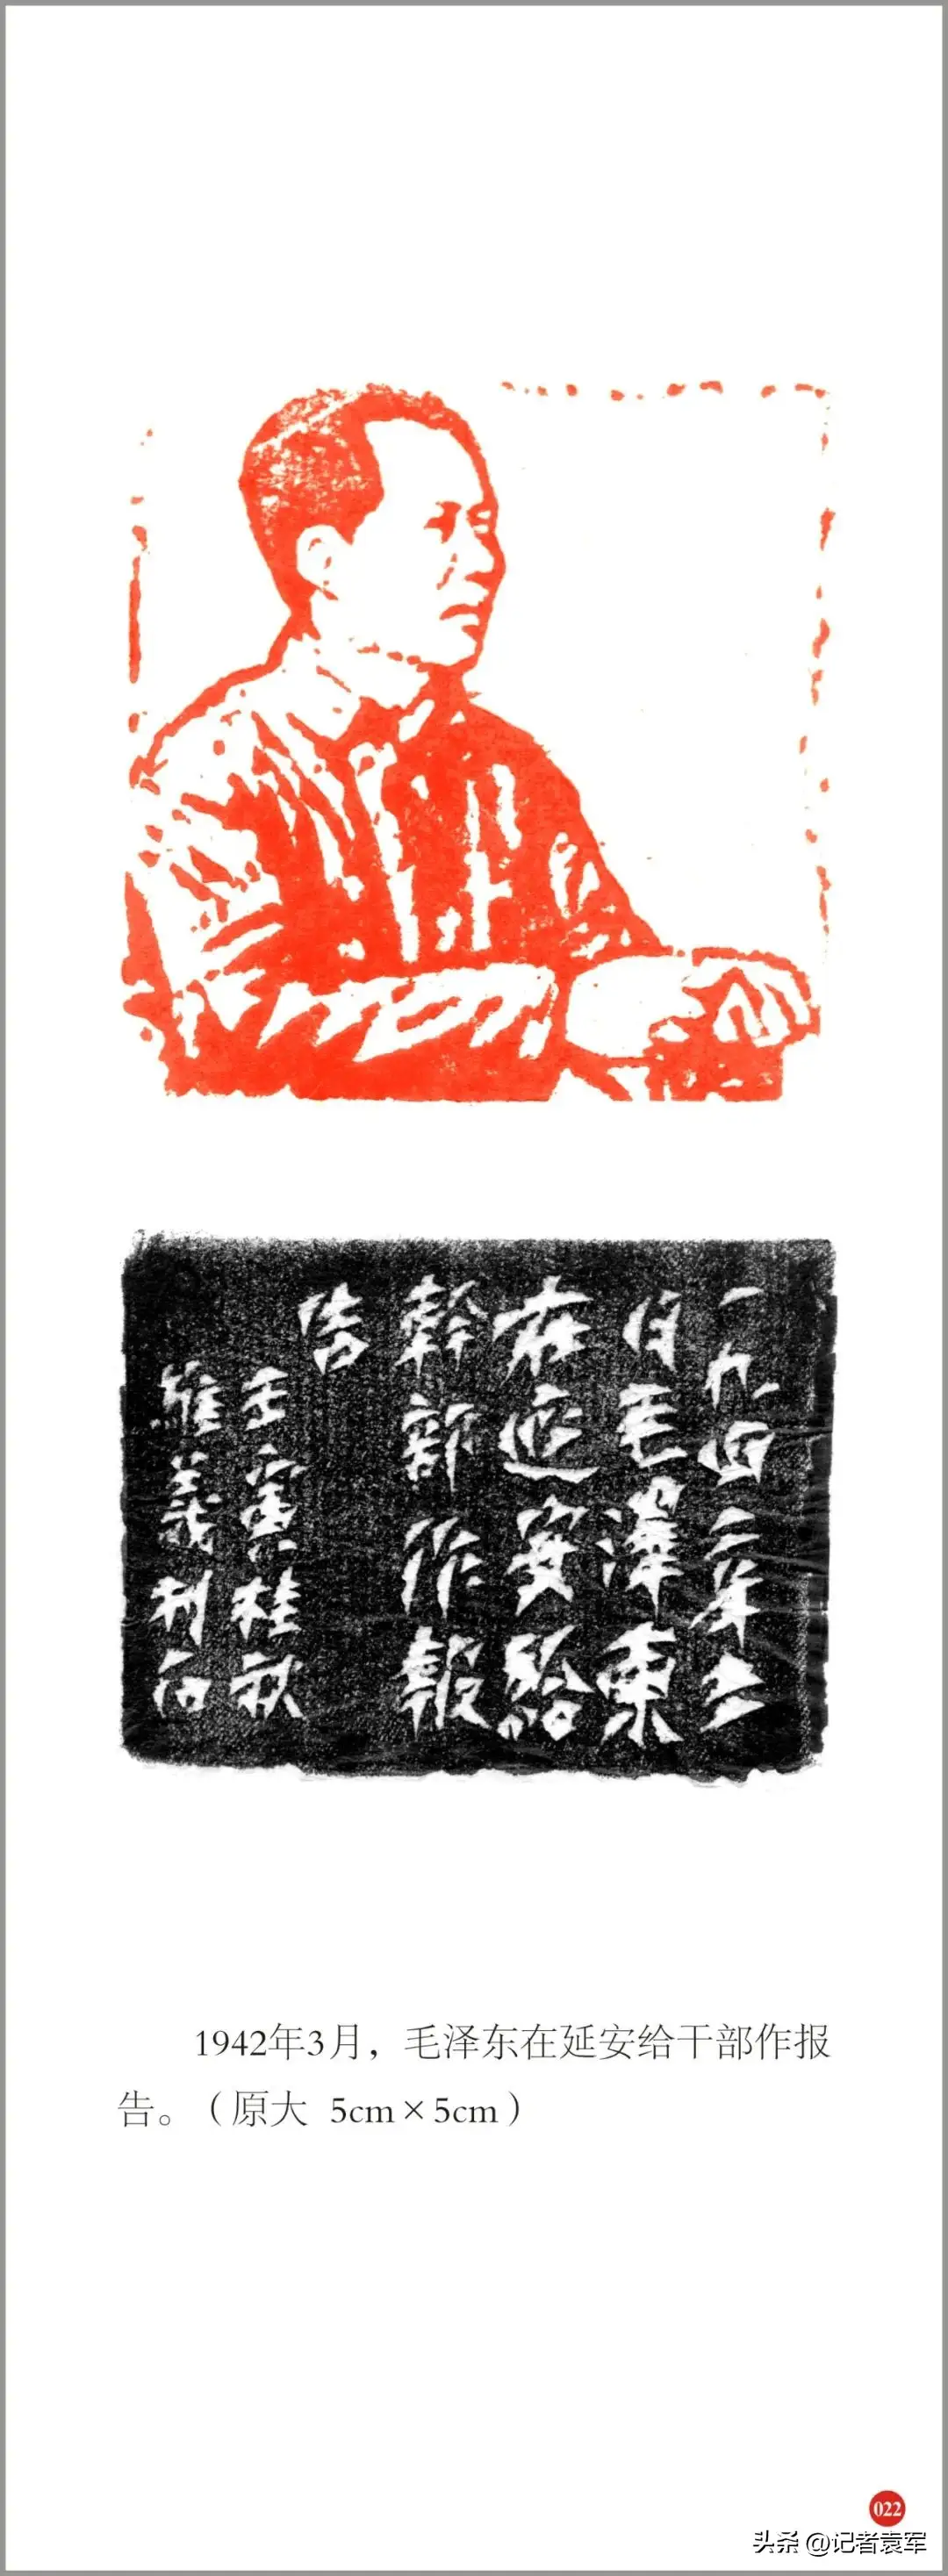 一九四二年三
月毛澤東
在延安給
幹部作報
告
壬寅桂秋
維義刊石
1942年3月，毛泽东在延安给干部作报
告。（原大 5cm×5cm）
022
头条 @记者袁军